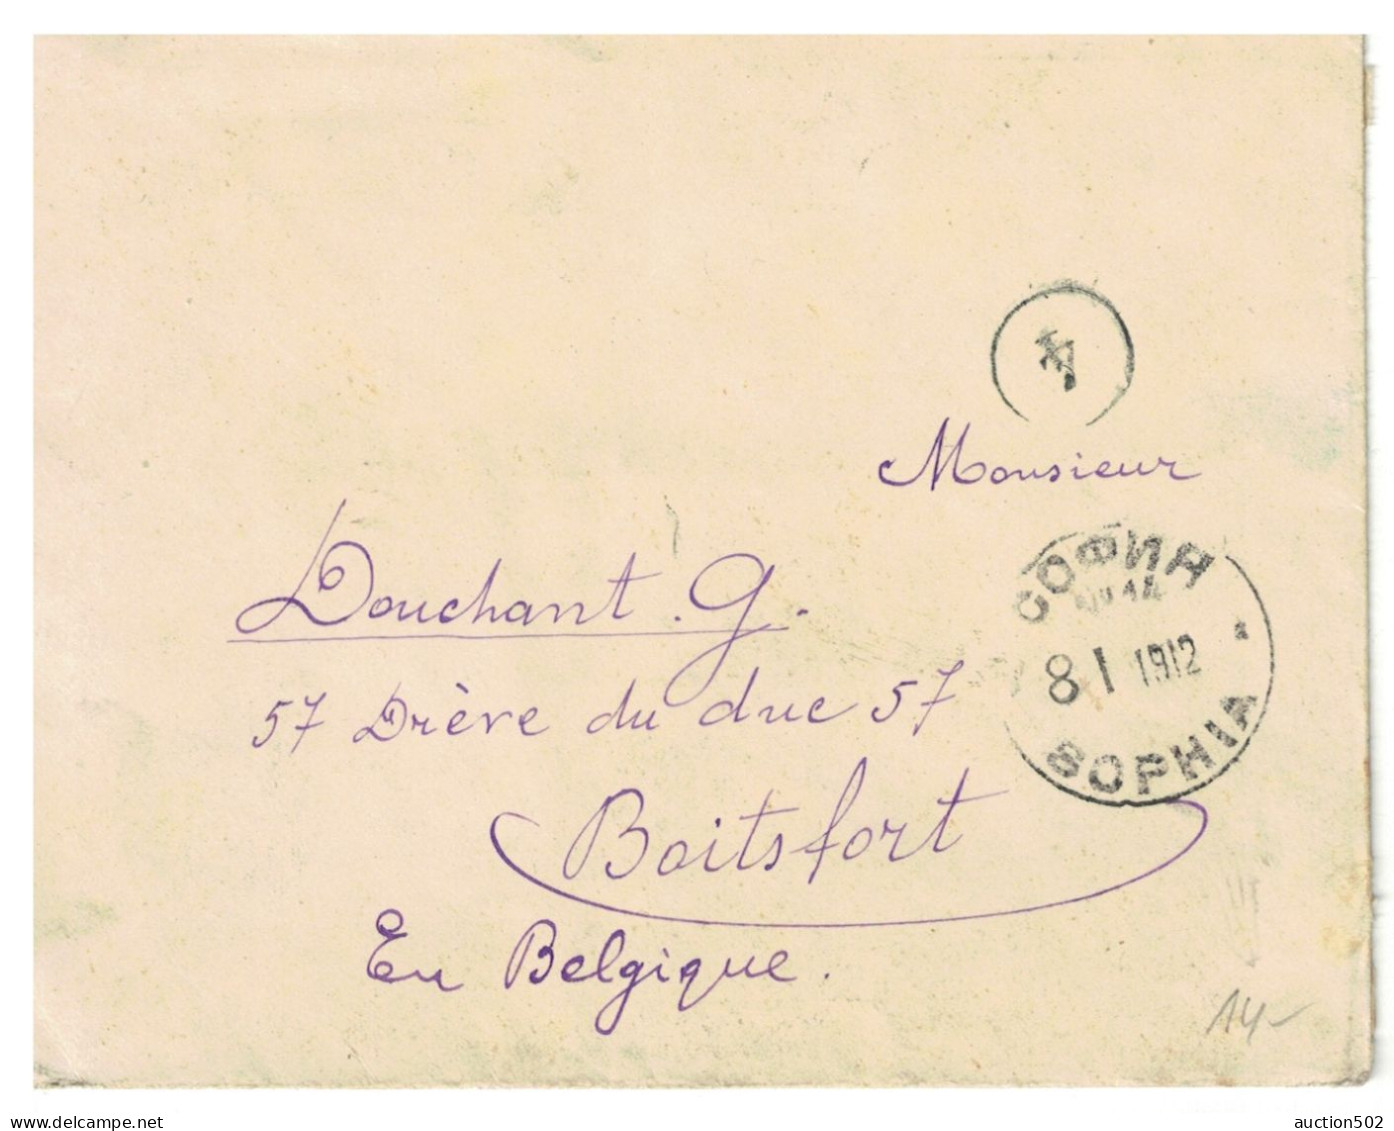 4
Monsieur
Douchant. G.
57 Drève du duc 57
Boitsfort
En Belgique.
СОФИЯ
8 I 1912
SOPHIA
14-
www.delcampe.net
auction502